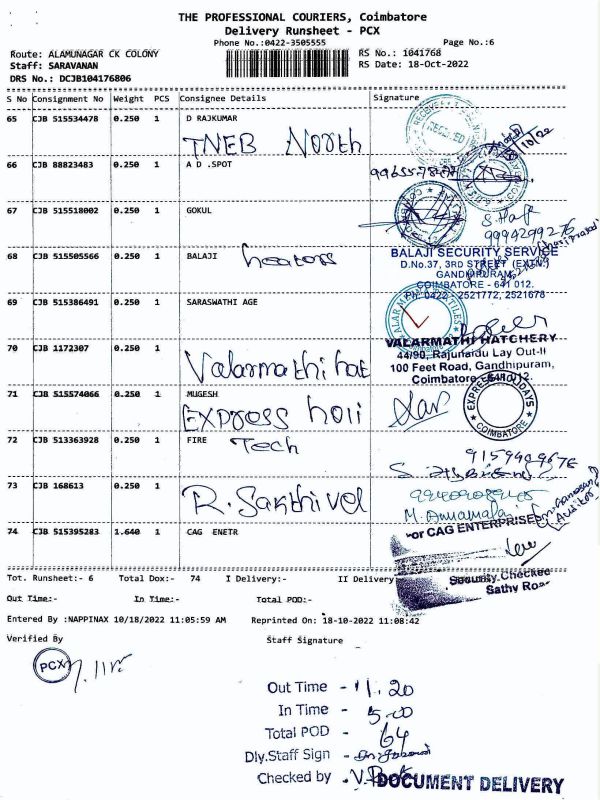 THE PROFESSIONAL COURIERS, Coimbatore
Delivery Runsheet - PCX
Phone No.:0422-3505555 Page No.:6
Route: ALAMUNAGAR CK COLONY RS No.: 1041768
Staff: SARAVANAN RS Date: 18-Oct-2022
DRS No.: DCJB104176806
S No Consignment No Weight PCS Consignee Details Signature
65 CJB 515534478 0.250 1 D RAJKUMAR
TNEB North
RECEIVED
66 CJB 88823483 0.250 1 A D .SPOT
67 CJB 515518002 0.250 1 GOKUL
Staff
9994299276
68 CJB 515505566 0.250 1 BALAJI heaters
BALAJI SECURITY SERVICE
D.No.37, 3RD STREET (EXTN.)
GANDHIPURAM,
COIMBATORE - 641 012.
Ph: 0422 - 2521772, 2521678
69 CJB 515386491 0.250 1 SARASWATHI AGE
70 CJB 1172307 0.250 1
Valarmathi hat
VALARMATHI HATCHERY
44/90, Rajunaidu Lay Out-II
100 Feet Road, Gandhipuram,
Coimbatore - 641 012.
71 CJB 515574066 0.250 1 MUGESH
EXPRESS holi
EXPRESS HOLIDAYS
COIMBATORE
72 CJB 513363928 0.250 1 FIRE Tech
9159909676
73 CJB 168613 0.250 1
R. Sakthivel
M. Annamalai
74 CJB 515395283 1.640 1 CAG ENETR
For CAG ENTERPRISE
Security Checked
Sathy Road
Tot. Runsheet:- 6 Total Dox:- 74 I Delivery:- II Delivery
Out Time:- In Time:- Total POD:-
Entered By :NAPPINAX 10/18/2022 11:05:59 AM Reprinted On: 18-10-2022 11:08:42
Verified By Staff Signature
PCX
Out Time - 11.20
In Time - 5.00
Total POD - 64
Dly.Staff Sign -
Checked by -
DOCUMENT DELIVERY